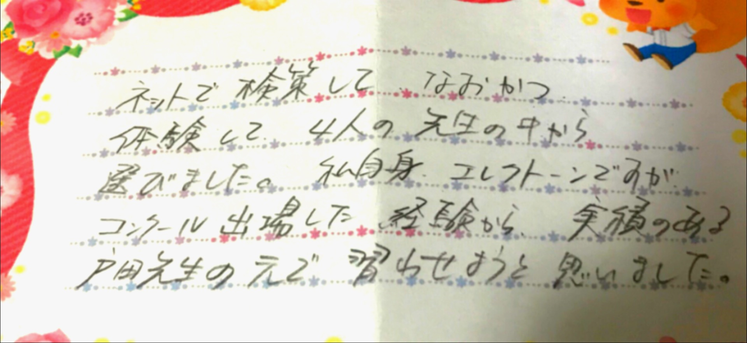 ネットで検策して、なおかつ
体験して、4人の先生の中から
選びました。私自身、エレクトーンですが、
コンクール出場した経験から、実績のある
戸田先生の元で習わせようと思いました。